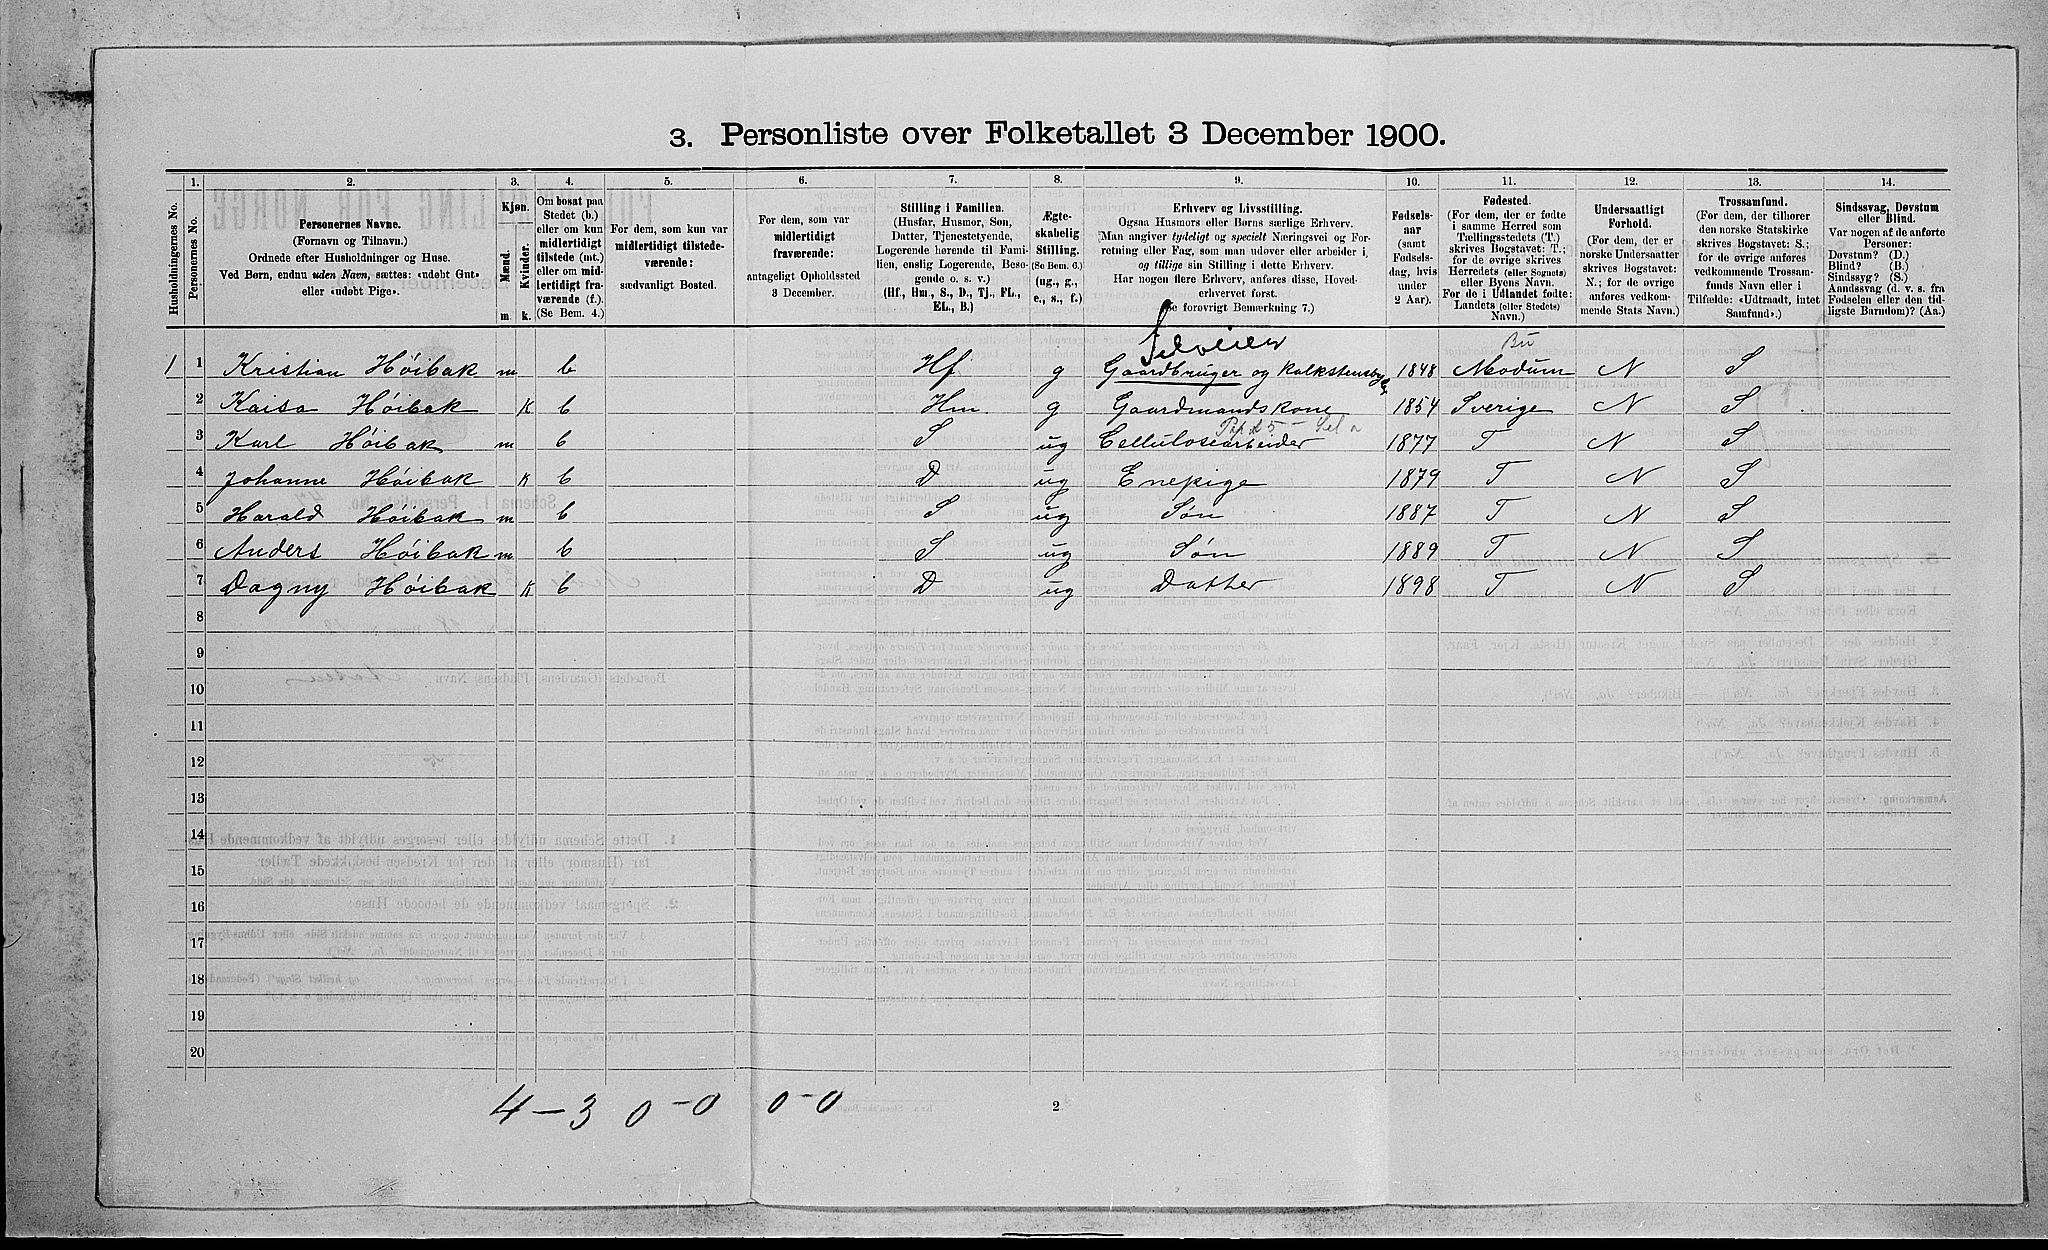 3. Personliste over Folketallet 3 December 1900.
Husholdningernes No.
1.
Personernes No.
2.
Personernes Navne.
(Fornavn og Tilnavn.)
Ordnede efter Husholdninger og Huse.
Ved Børn, endnu uden Navn, sættes: «udøbt Gut»
eller «udøbt Pige».
3.
Kjøn.
Mænd.
Kvinder.
m
k.
4.
Om bosat paa
Stedet (b.)
eller om kun
midlertidigt
tilstede (mt.)
eller om mid-
lertidigt fra-
værende (f.)
(Se Bem. 4.)
5.
For dem, som kun var
midlertidigt tilstede-
værende:
sædvanligt Bosted.
6.
For dem, som var
midlertidigt
fraværende:
antageligt Opholdssted
3 December.
7.
Stilling i Familien.
(Husfar, Husmor, Søn,
Datter, Tjenestetyende,
Logerende hørende til Fami-
lien, enslig Logerende, Besø-
gende o. s. v.)
(Hf., Hm., S., D., Tj., FL.,
EL., B.)
8.
Ægte-
skabelig
Stilling.
(Se Bem. 6.)
(ug., g.,
e., s., f.)
9.
Erhverv og Livsstilling.
Ogsaa Husmors eller Børns særlige Erhverv.
(Man angiver tydeligt og specielt Næringsvei og For-
retning eller Fag, som man udøver eller arbeider i,
og tillige sin Stilling i dette Erhverv.
Har nogen flere Erhverv, anføres disse, Hoved-
erhvervet først.
(Se forøvrigt Bemærkning 7.)
10.
Fødsels-
aar
(samt
Fødsels-
dag, hvis
under
2 Aar).
11.
Fødested.
(For dem, der er fødte
i samme Herred som
Tællingsstedets (T.)
skrives Bogstavet: T.;
for de øvrige skrives
Herredets (eller Sognets)
eller Byens Navn.
For de i Udlandet fødte:
Landets (eller Stedets)
Navn.)
12.
Undersaatligt
Forhold.
(For dem, der er
norske Undersaatter
skrives Bogstavet:
N.; for de øvrige
anføres vedkom-
mende Stats Navn.)
13.
Trossamfund.
(For dem, der tilhører
den norske Statskirke
skrives Bogstavet: S.;
for de øvrige anføres
vedkommende Trossam-
funds Navn eller i
Tilfælde: «Udtraadt, intet
Samfund».)
14.
Sindssvag, Døvstum
eller Blind.
Var nogen af de anførte
Personer:
Døvstum? (D.)
Blind? (B.)
Sindssyg? (S.)
Aandssvag (d. v. s. fra
Fødselen eller den tid-
ligste Barndom)? (Aa.)
Selveier
Bu
1 1 Kristian Høibak m b Hf g Gaardbruger og 1848 Modum N S
2 Kaisa Høibak K b Hm. g Gaardmandskone 1854 Sverige N S
3 Karl Høibak m b S ug Cellulosearbeider 1877 T N S
4 Johanne Høibak K b D ug Enepige 1879 T N S
5 Harald Høibak m b S ug Søn 1887 T N S
6 Anders Høibak m b S ug Søn 1889 T N S
7 Dagny Høibak K b D ug Datter 1898 T N S
8
9
10
11
12
13
14
15
16
17
18
19
20
4 – 3 0 – 0 0 – 0
2